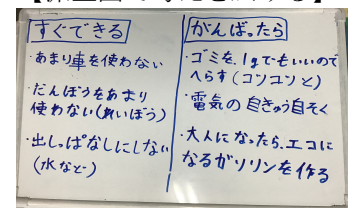 すぐできる
・あまり車を使わない
・だんぼうをあまり
使わない(れいぼう)
・出しっぱなしにしない
(水など)
がんばったら
・ゴミを、1gでもいいので
へらす(コツコツと)
・電気の自きゅう自そく
・大人になったら、エコに
なるガソリンを作る